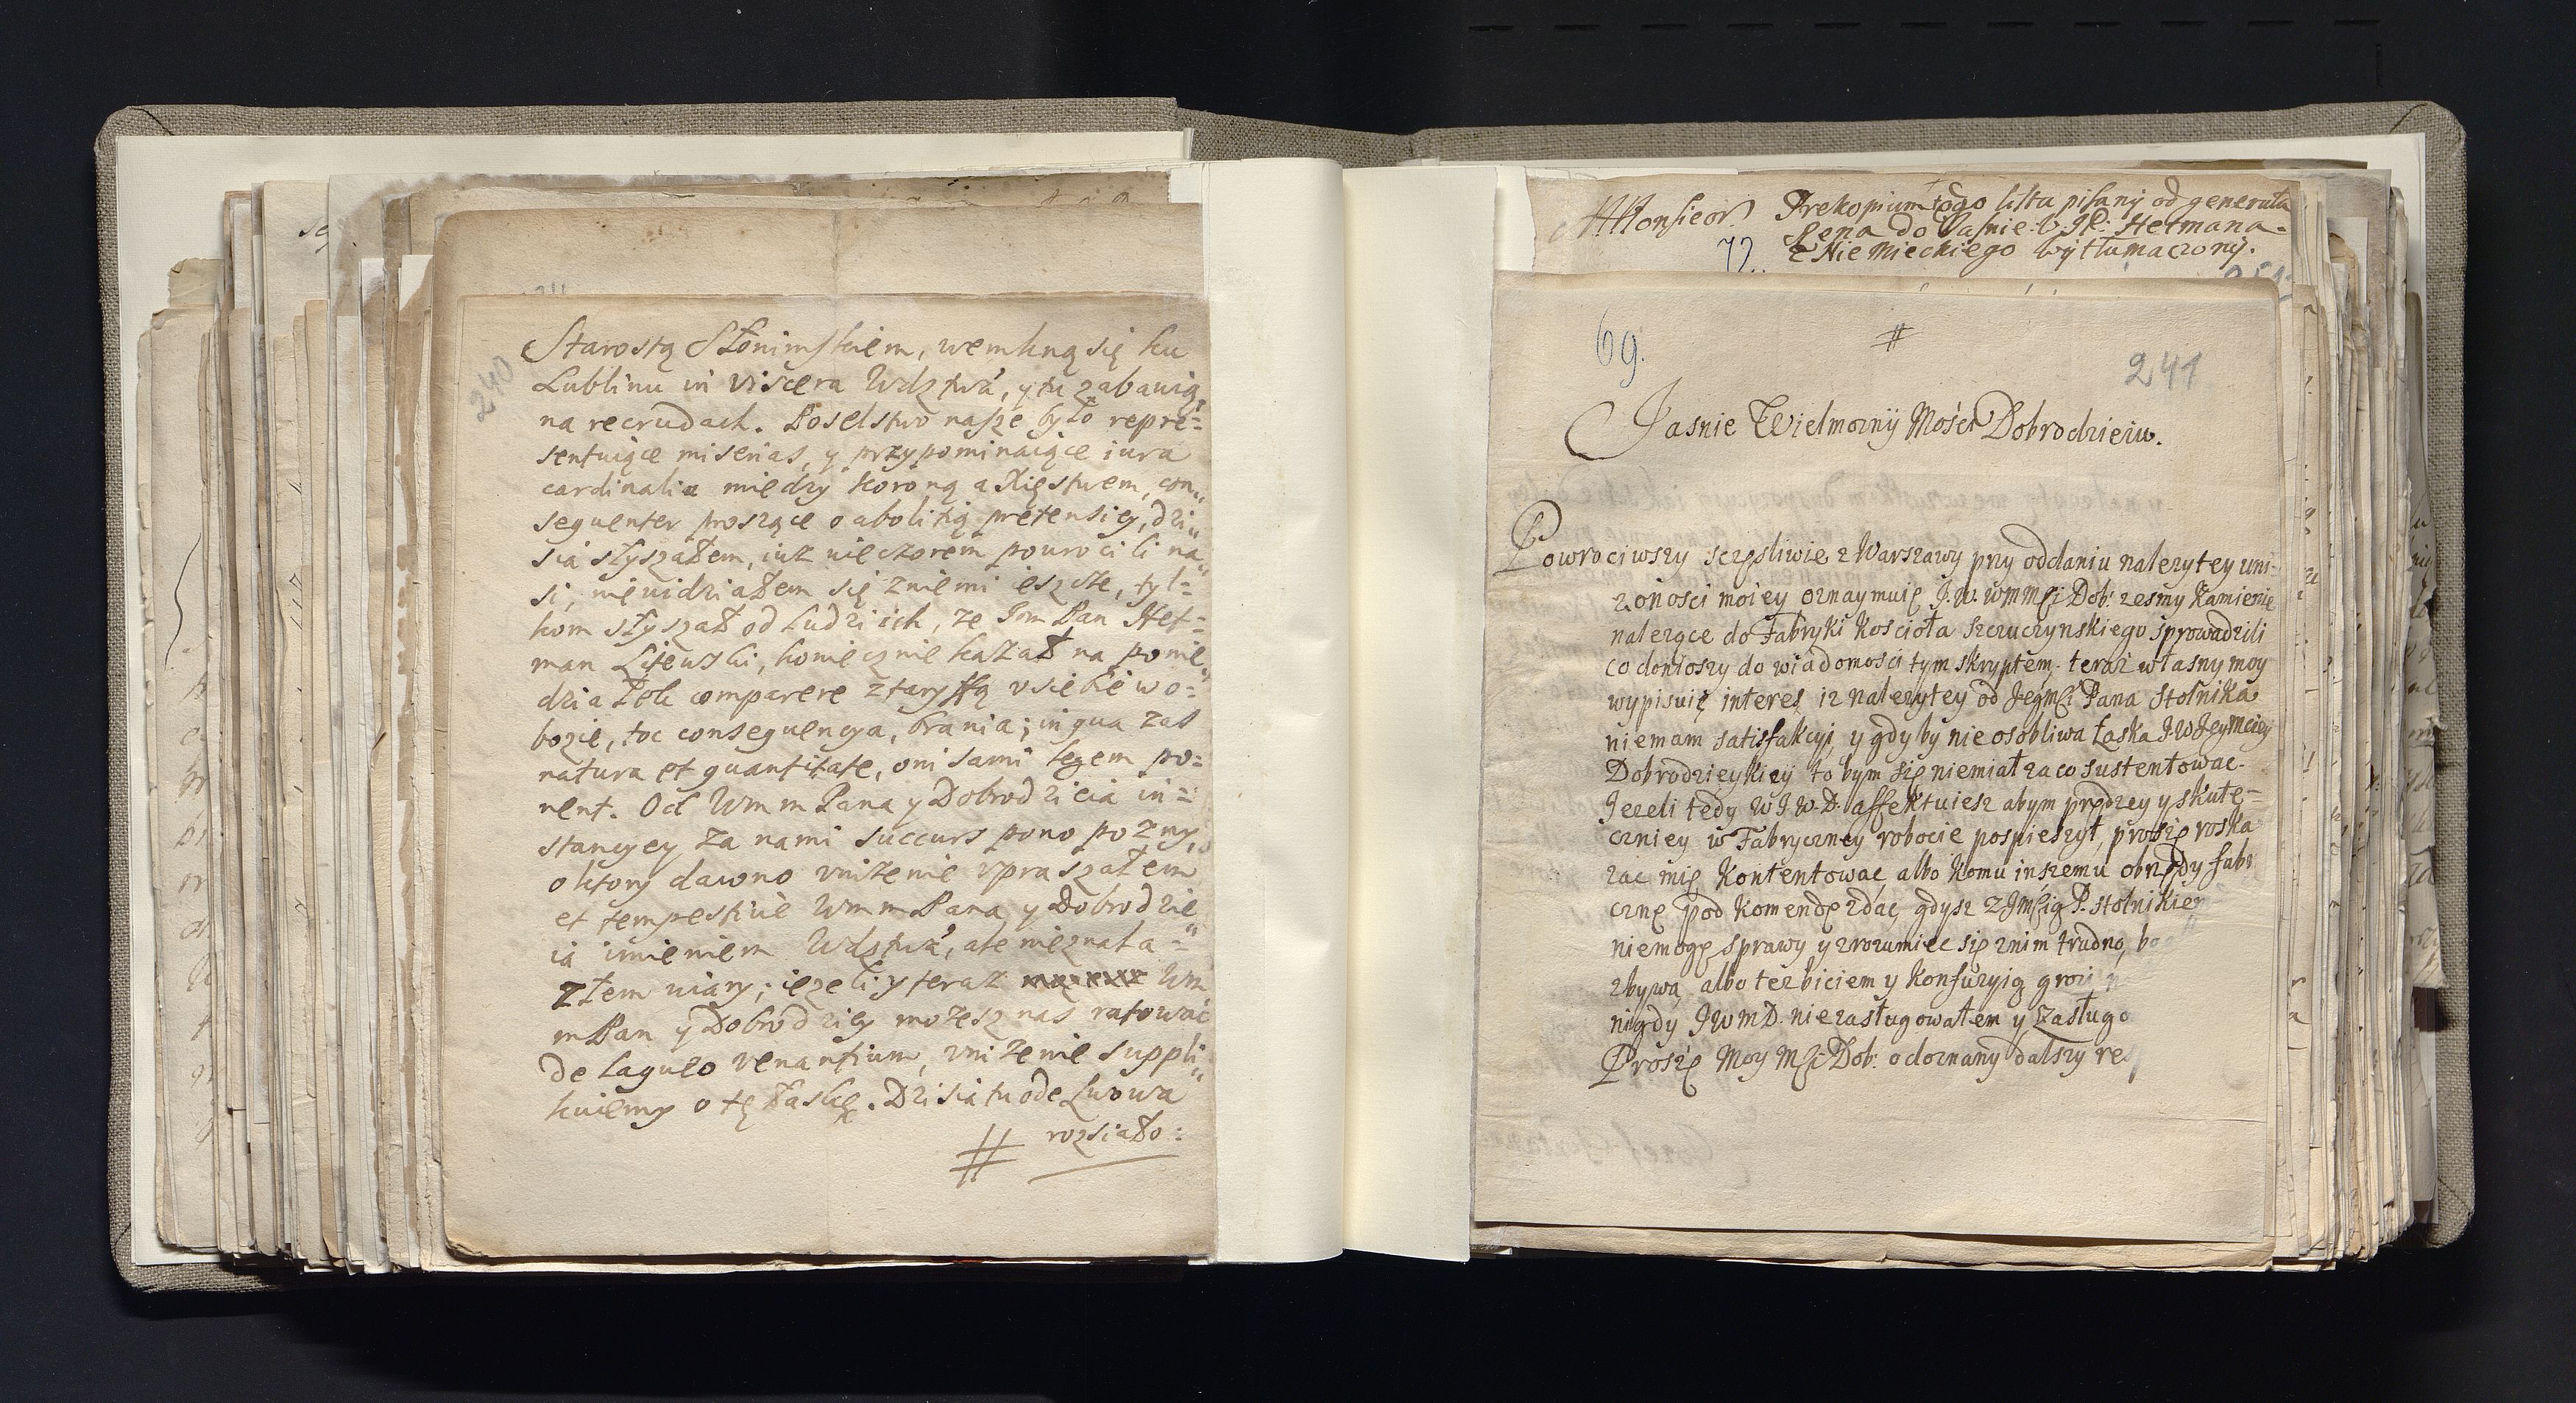 240
Starostą Słonimskiem, wemkną się ku
Lublinu in viscera Wdztwa, y tu zabawią
na recrudach. Poselstwo nasze było repre=
sentuiące miserias, y przypominaiące iura
cardinalia między Koroną a Xięstwem, con„
sequenter proszące o abolitią pretensiey, dzi„
sia słyszałem, iuz wieczorem powrocili na„
si, niewidziałem się z niemi ieszcze, tyl=
kom słyszał od ludzi ich, ze Jm Pan Het=
man Litewski, koniecznie kazał na ponie„
działek comparere z taryffą v siebie w o=
bozie, toc consequencya, brania; in qua zas
natura et quantitate, oni sami legem po=
nent. Od Wm m Pana y Dobrodzieia in=
stancyey za nami succurs pono pozny,
o ktory dawno vnizenie vpraszałem
et tempestive Wm m Pana y Dobrodzie
ia imieniem Wdztwa, ale nieznala=
złem wiary; iezeli y teraz Wm
m Pan y Dobrodziey mozesz nas ratować
de laqueo venantium, vnizenie suppli„
kuiemy o tę łaskę. Dzisia tu ode Lwowa
rozsiało:
Monsieor
72.
Przekopiumtego lista pisany od generała
Rena do Jasnie W. JP. Hetmana.
z Niemieckiego wytłumaczony.
69.
241
Jasnie Wielmozny Mości Dobrodzieiu.
Powrociwszy sczęsliwie z Warszawy przy oddaniu nalezytey uni-
zonosci moiey oznaymuię J. W. WMMści Dob: zesmy Kamienie
nalezące do Fabryki Koscioła Szczuczynskiego sprowadzili
co doniozszy do wiadomosci tym skryptem. teraz własny moy
wypisuię interes iz nalezytey od Jegmści Pana Stolnika
niemam satisfakcyi, y gdyby nie osobliwa Łaska JWJeymciey
Dobrodzieykiey to bym się niemiał za co sustentowac.
Jezeli tedy W J. W. D. affektuiesz abym prędzey y skute=
czniey w Fabryczney robocie pospieszył, proszę roska
zac mię Kontentowac albo Komu inszemu obrzędy fabr
czne pod Komendę zdac, gdysz z Jmścią P. Stolnikiem
niemogę sprawy y zrozumiec się znim trudno, bo
zbywa albo tez biciem y Konfuzyią grozi
nigdy JWMD. niezasługowałem y Zasługo
Proszę Moy Mści Dob: o doznany dalszy res